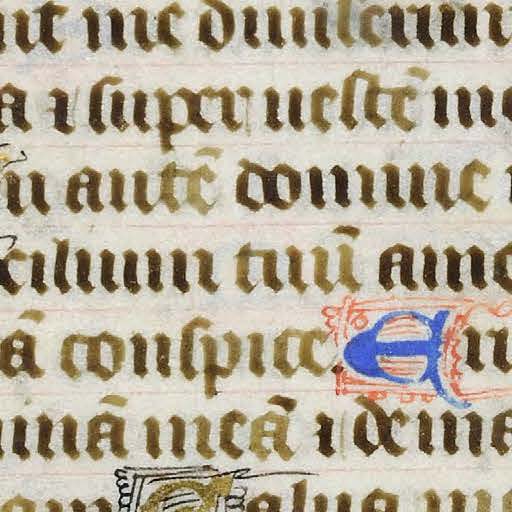 nt me diuiserunt
a ⁊ super uestē me
u autē domine
xilium tuū
ā conspice. Eru
imā meā ⁊ de ma
Salua me